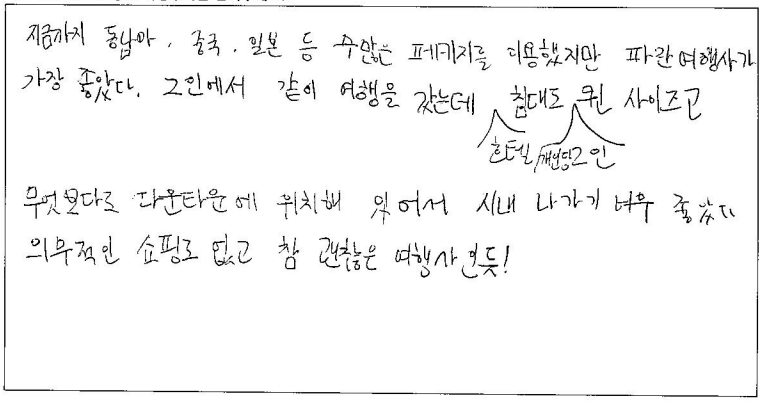 지금까지 동남아, 중국, 일본 등 수많은 페키지를 이용했지만 파란여행사가
가장 좋았다. 2인에서 같이 여행을 갔는데 침대도 퀸 사이즈고
호텔/개인당2인
무엇보다도 다운타운에 위치해 있어서 시내 나가기 너무 좋았다
의무적인 쇼핑도 없고 참 괜찮은 여행사인듯!